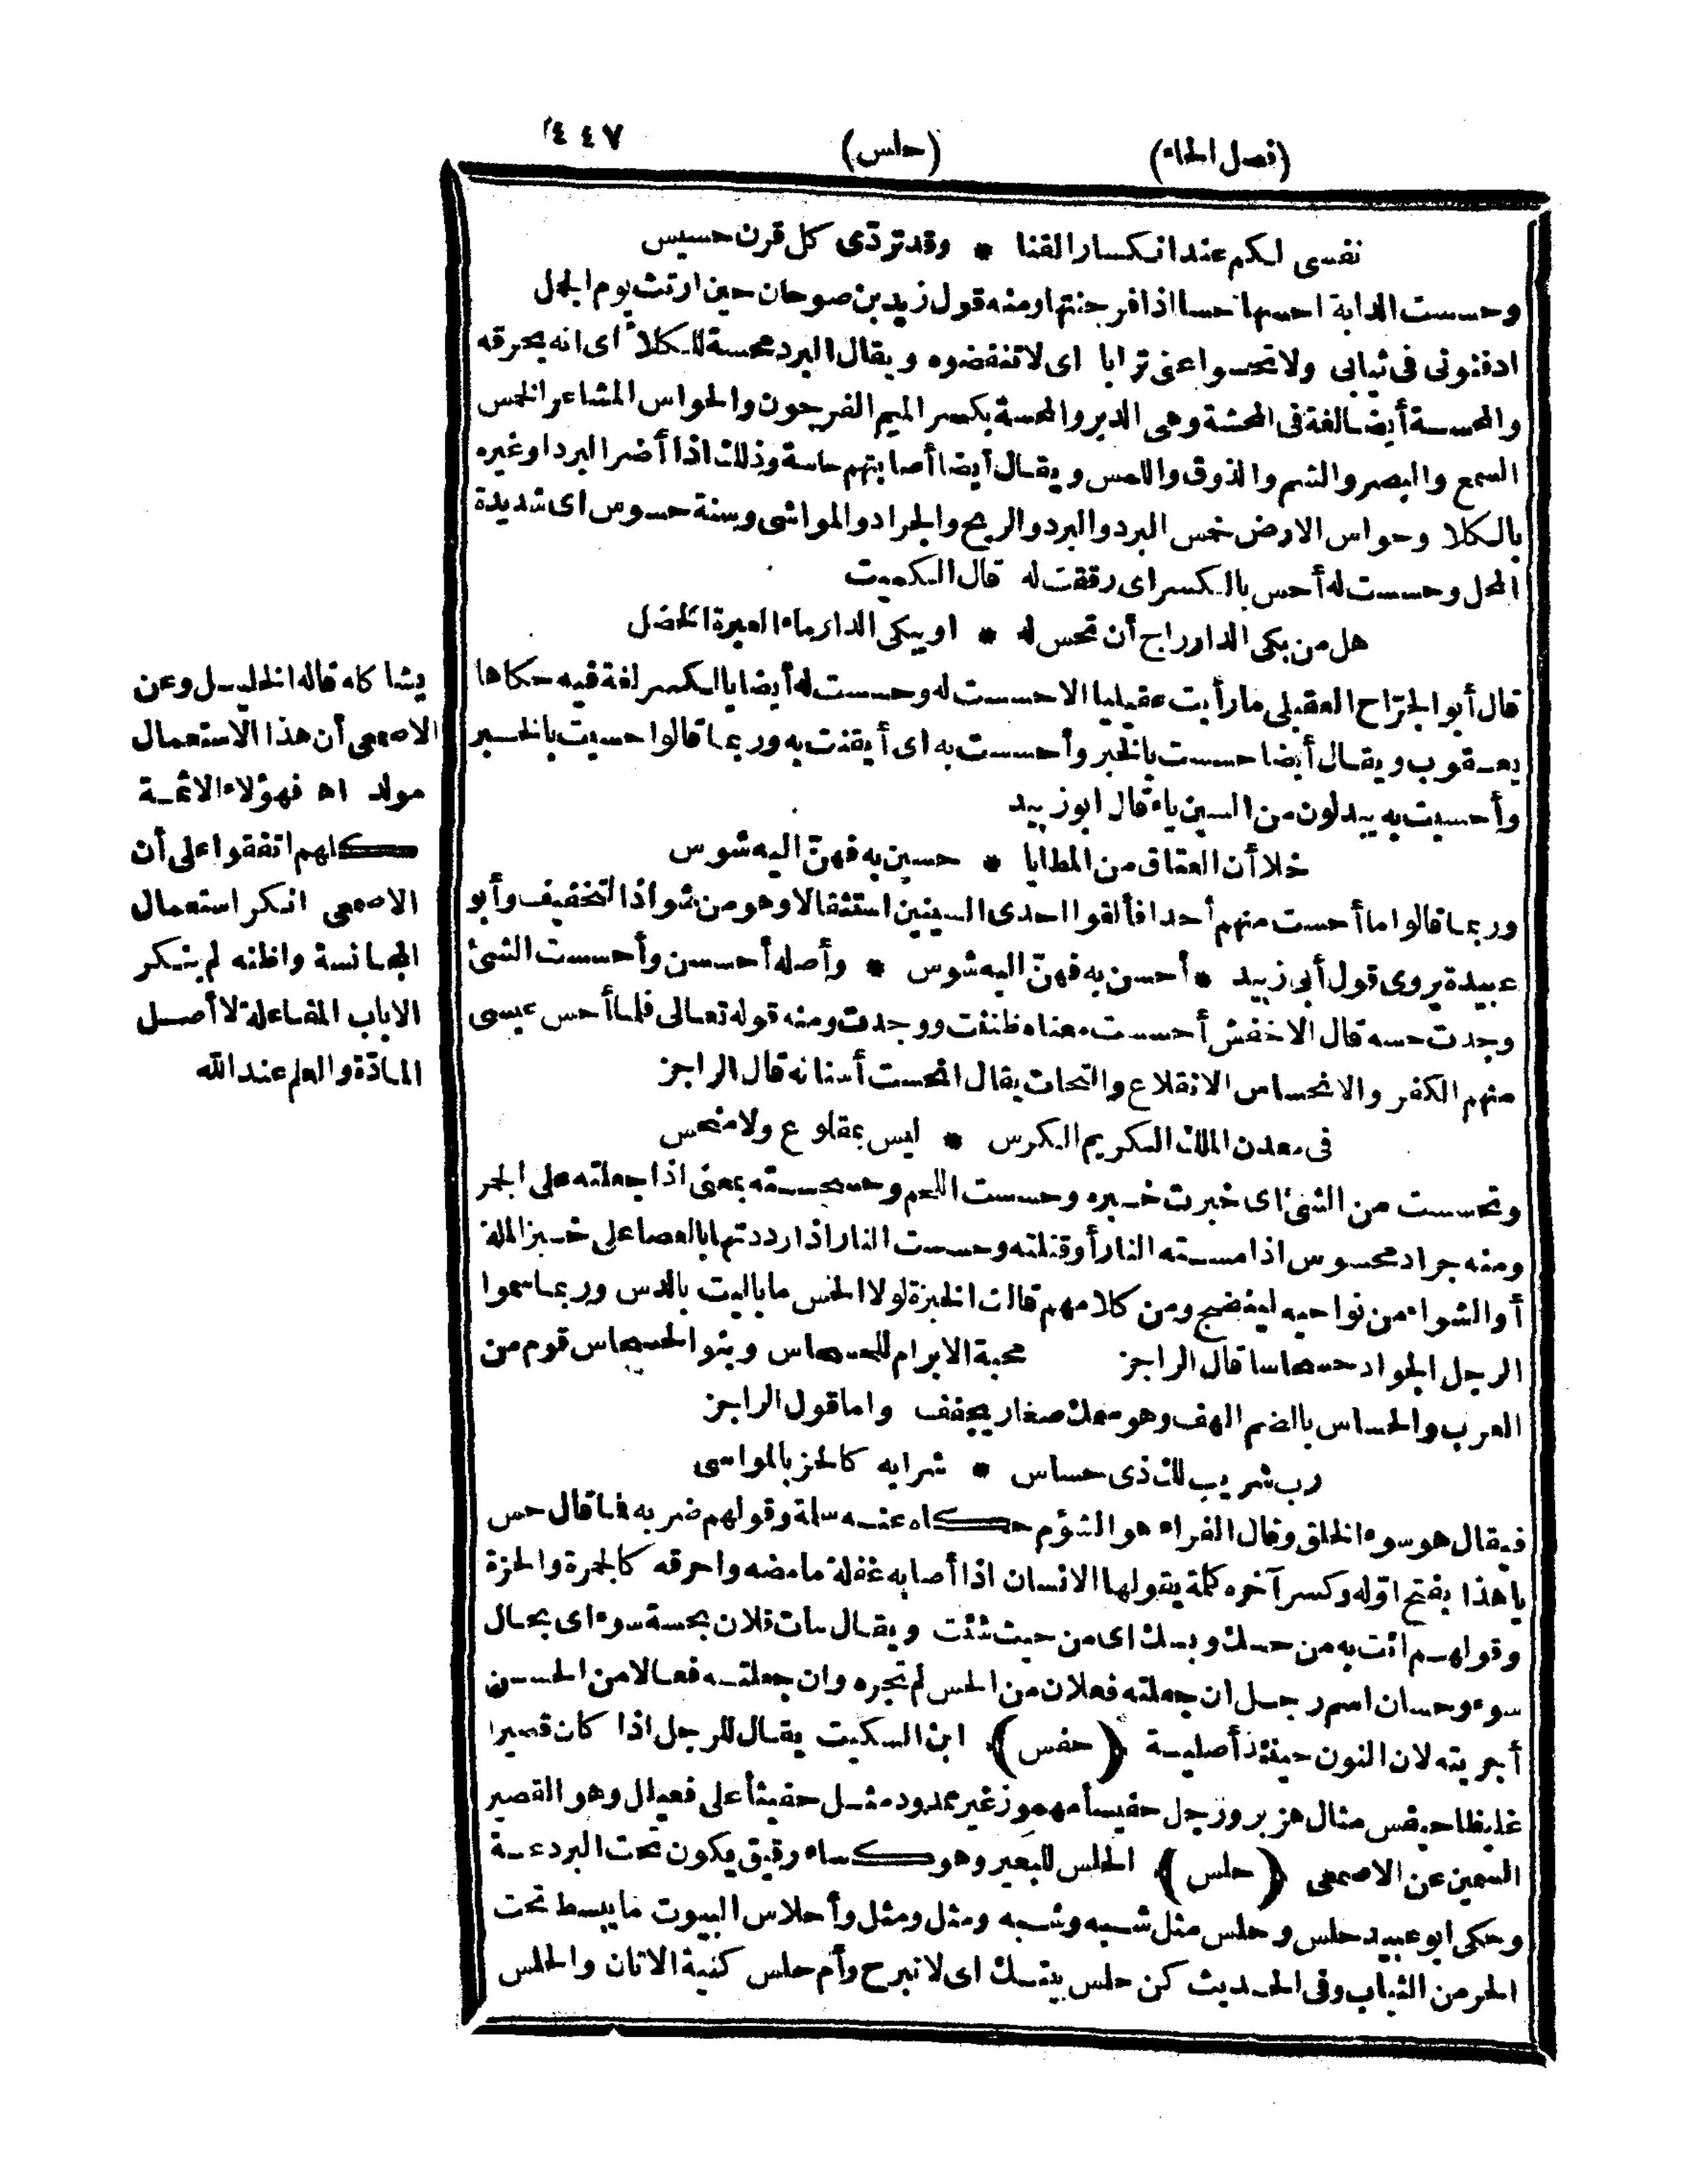 (فصل الحاء) (حلس) ٤٤٧
نفسى لكم عند انكسار القنا * وقد تردّى كل قرن حسيس
وحسست الدابة احسها حسا اذا فرجنتها ومنه قول زيد بن صوحان حين ارتث يوم الجمل
ادفنونى فى ثيابى ولا تحسوا عنى ترابا اى لا تنفضوه ويقال البرد محسة للكلأ اى انه يحرقه
والمحسة أيضا لغة فى المحشة وهى الدبر والمحسة بكسر الميم الفرجون والحواس المشاعر الخمس
السمع والبصر والشم والذوق واللمس ويقال أيضا أصابتهم حاسة وذلك اذا أضر البرد او غيره
بالكلا وحواس الارض خمس البرد والبرد والريح والجراد والمواشى وسنة حسوس اى شديدة
المحل وحسست له أحس بالكسر اى رققت له قال الكميت
هل من بكى الدار راج أن تحس له * او يبكى الدار ماء العبرة الخضل
قال أبو الجرّاح العقيلى ما رأيت عقيليا الا حسست له وحسست له أيضا بالكسر لغة فيه حكاها
يعقوب ويقال أيضا حسست بالخبر وأحسست به اى أيقنت به وربما قالوا حسيت بالخبر
وأحسيت به يبدلون من السين ياء قال ابو زبيد
خلا أن العتاق من المطايا * حسين به فهنّ اليه شوس
وربما قالوا ما أحست منهم أحدا فألقوا احدى السينين استثقالا وهو من شواذ التخفيف وأبو
عبيدة يروى قول أبى زبيد * أحسن به فهنّ اليه شوس * وأصله أحسسن وأحسست الشئ
وجدت حسه قال الاخفش أحسست معناه ظننت ووجدت ومنه قوله تعالى فلما أحس عيسى
منهم الكفر والانحساس الانقلاع والتحات يقال انحست أسنانه قال الراجز
فى معدن الملك الكريم الكرس * ليس بمقلوع ولا منحس
وتحسست من الشئ اى خبرت خبره وحسست اللحم وحسحسته بمعنى اذا جعلته على الجمر
ومنه جراد محسوس اذا مسته النار أو قتلته وحسست النار اذا رددتها بالعصا على خبز الملة
أو الشواء من نواحيه لينضج ومن كلامهم قالت الخبزة لولا الحس ما باليت بالدس وربما سموا
الرجل الجواد حسحاسا قال الراجز محبة الابرام للحسحاس وبنو الحسحاس قوم من
العرب والحساس بالضم الهف وهو سمك صغار يجفف واما قول الراجز
رب شريب لك ذى حساس * شرابه كالحز بالمواسى
فيقال هو سوء الخلق وقال الفراء هو الشؤم حكاه عنه سلمة وقولهم ضربه فما قال حس
يا هذا بفتح اوّله وكسر آخره كلمة يقولها الانسان اذا أصابه غفلة ما مضه واحرقه كالجمرة والحزة
وقولهم ائت به من حسك وبسك اى من حيث شئت ويقال بات فلان بحسة سوء اى بحال
سوء وحسان اسم رجل ان جعلته فعلان من الحس لم تجره وان جعلته فعالا من الحسن
أجريته لان النون حينئذ أصلية (حفس) ابن السكيت يقال للرجل اذا كان قصيرا
غليظا حيفس مثال هزبر ورجل حفيسأ مهموز غير ممدود مثل حفيثأ على فعيلل وهو القصير
السمين عن الاصمعى (حلس) الحلس للبعير وهو كساء رقيق يكون تحت البردعة
وحكى ابو عبيد حلس وحلس مثل شبه وشبه ومثل ومثل وأحلاس البيوت ما يبسط تحت
الحر من الثياب وفى الحديث كن حلس بيتك اى لا تبرح وأم حلس كنية الاتان والحلس
يشاكله قاله الخليل وعن
الاصمعى أن هذا الاستعمال
مولد اه فهؤلاء الائمة
كلهم اتفقوا على أن
الاصمعى انكر استعمال
المجانسة واظنه لم ينكر
الا باب المفاعلة لا أصل
المادّة والعلم عند الله